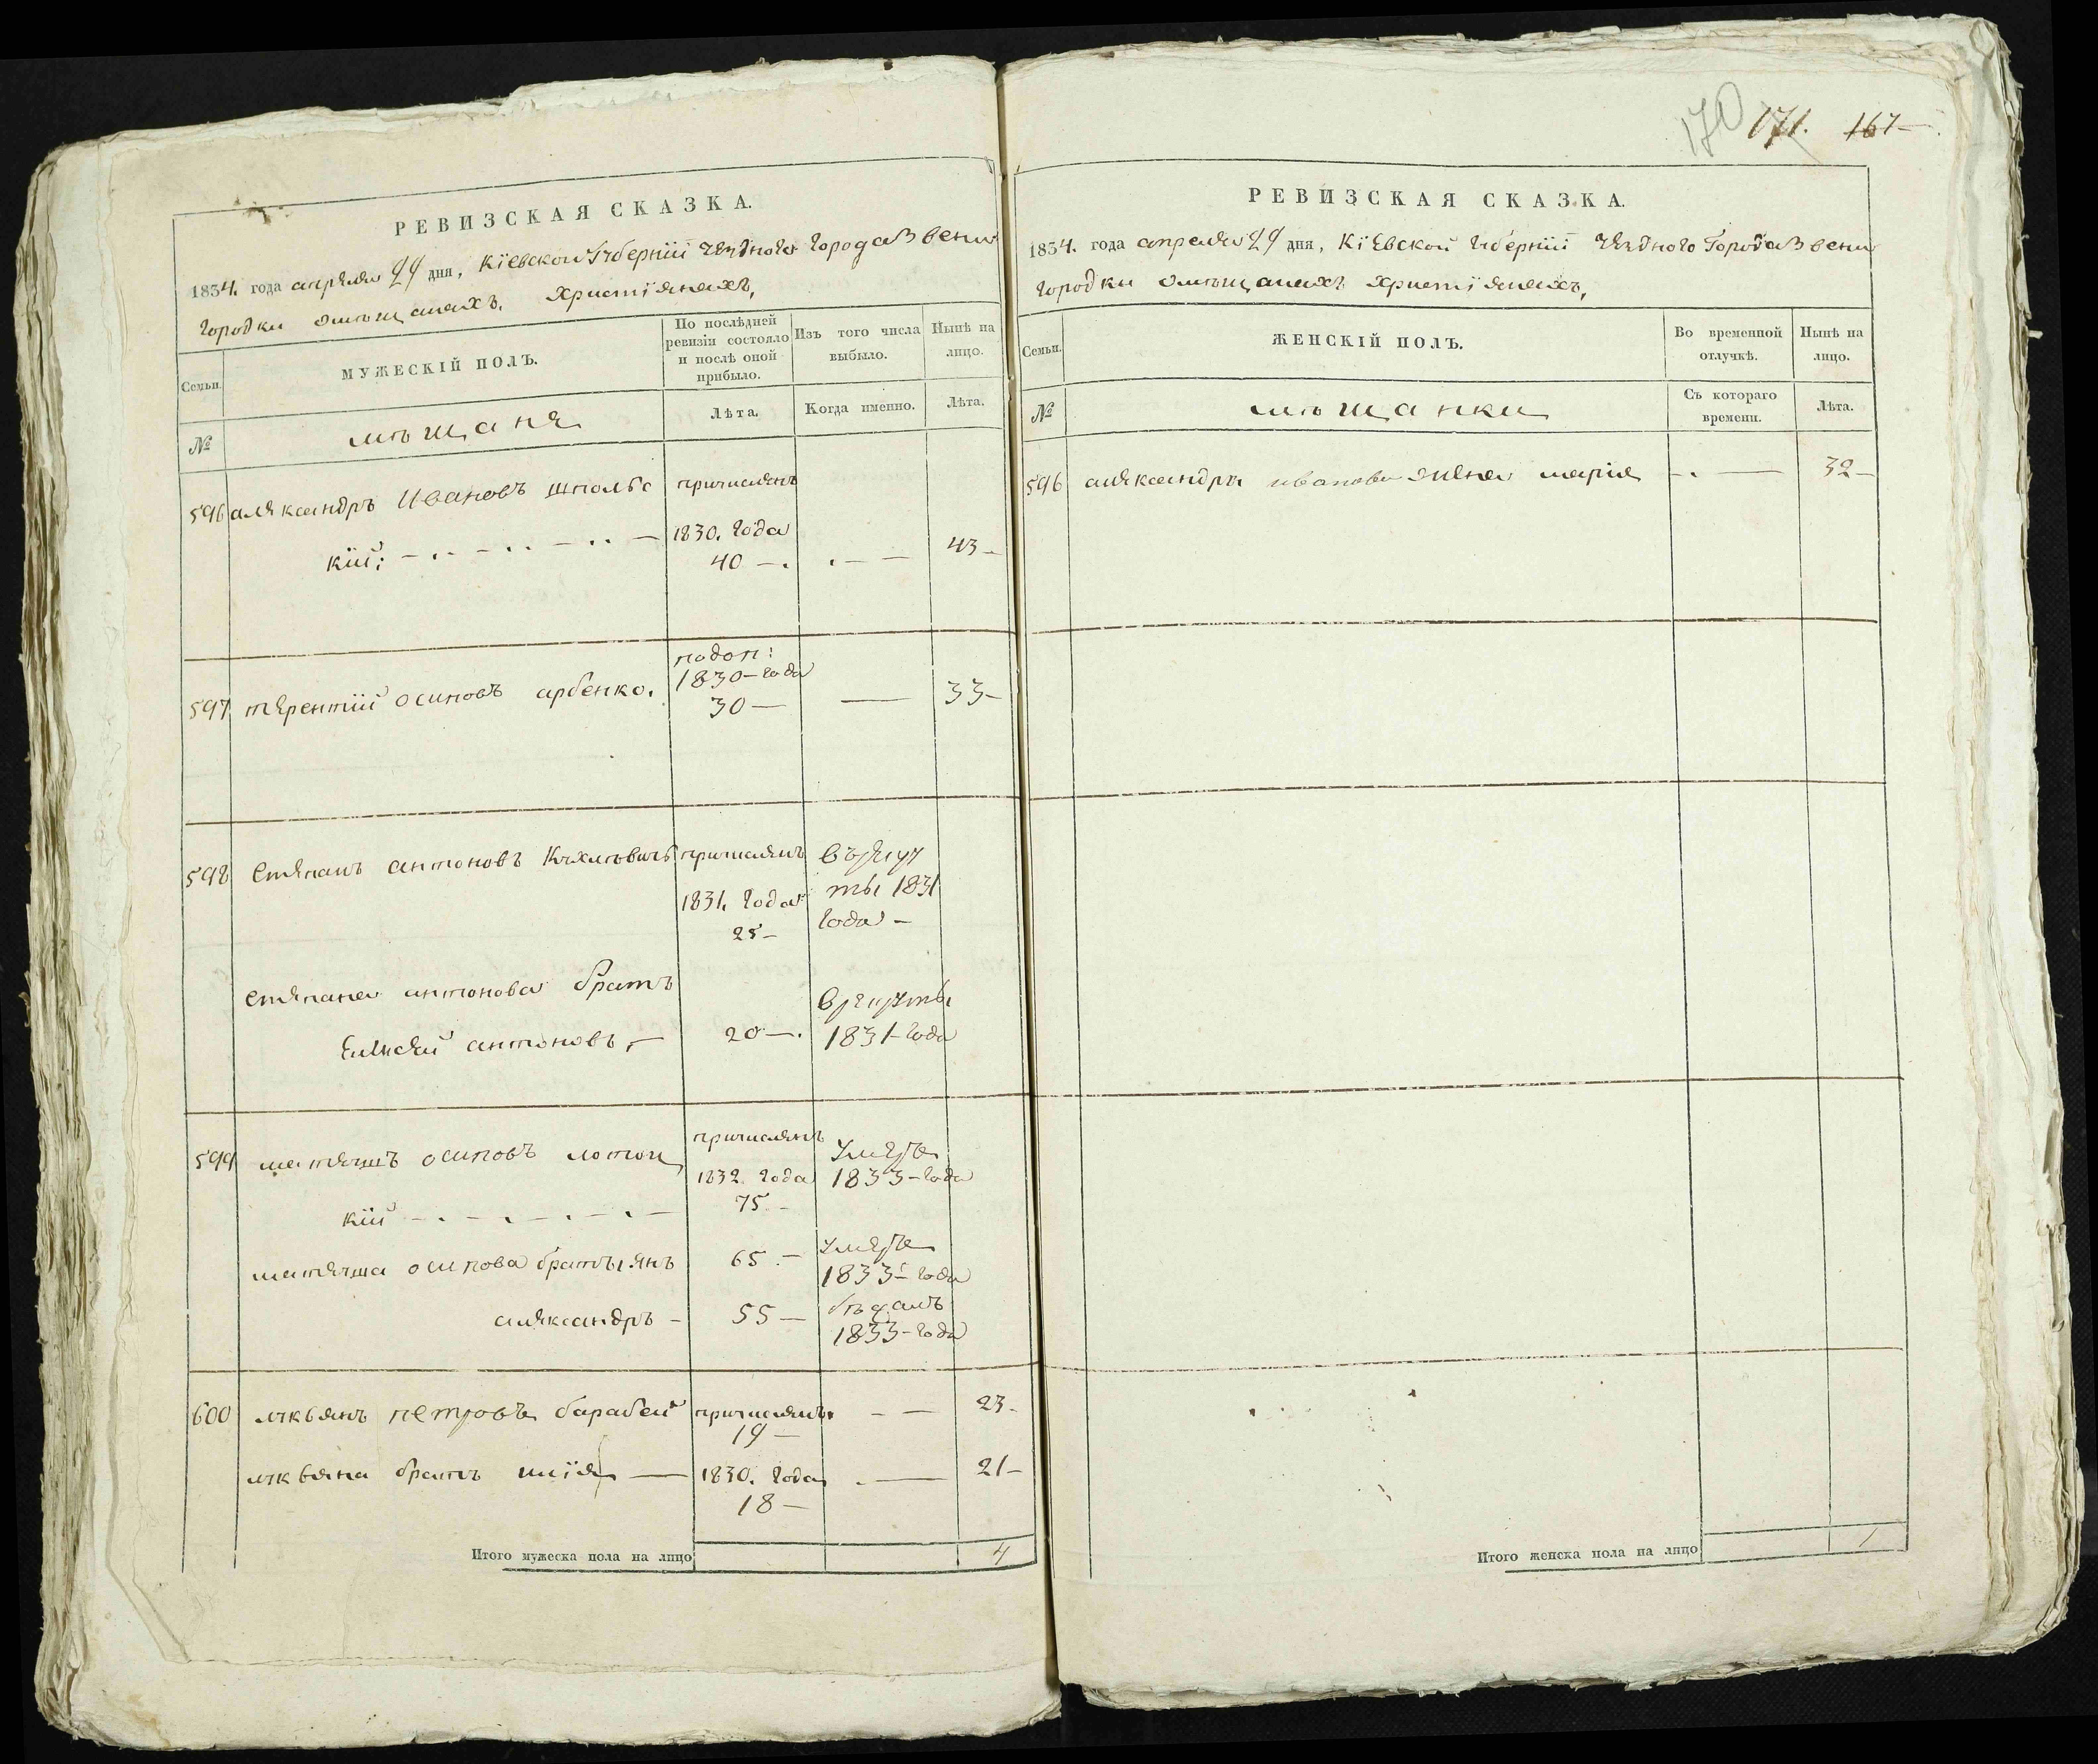 170 171. 167
РЕВИЗСКАЯ СКАЗКА.
1834. года апреля 29 дня, Кіевской Губерніи уезднаго города Звени
городки омѣщанахъ Христіянахъ,
Семьи.
МУЖЕСКІЙ ПОЛЪ.
По послѣдней ревизіи состояло и послѣ оной прибыло.
Изъ того числа выбыло.
Нынѣ на лицо.
№
мѣщаня
Лѣта.
Когда именно.
Лѣта.
596 аляксандръ Ивановъ шполяс причислянъ
кій: 1830. года
40 — 43 —
597 тярентій осиповъ арбенко. 1830 — года
30 — — 33 —
598 стяпанъ антоновъ причислянъ
1831. года 1831
25 — года —
стяпана антонова братъ
антоновъ — 20 — 1831 — года
599 осиповъ причислянъ умеръ
кій 1832. года 1833 — года
75 —
осипова братъ янъ 65 — умеръ
1833 — года
аляксандръ — 55 — бѣжалъ
1833 — года
600 лукьянъ петровъ барабей причислянъ — — 23 —
19 —
лукьяна братъ илія — 1830. года — 21 —
18 —
Итого мужеска пола на лицо 4
РЕВИЗСКАЯ СКАЗКА.
1834. года апреля 29 дня, Кіевской губерніи уезднаго Города Звени
городки омѣщанахъ христіянахъ,
Семьи.
ЖЕНСКІЙ ПОЛЪ.
Во временной отлучкѣ.
Нынѣ на лицо.
№
мѣщанки
Съ котораго времени.
Лѣта.
596 аляксандра иванова жена марія — 32 —
Итого женска пола на лицо 1